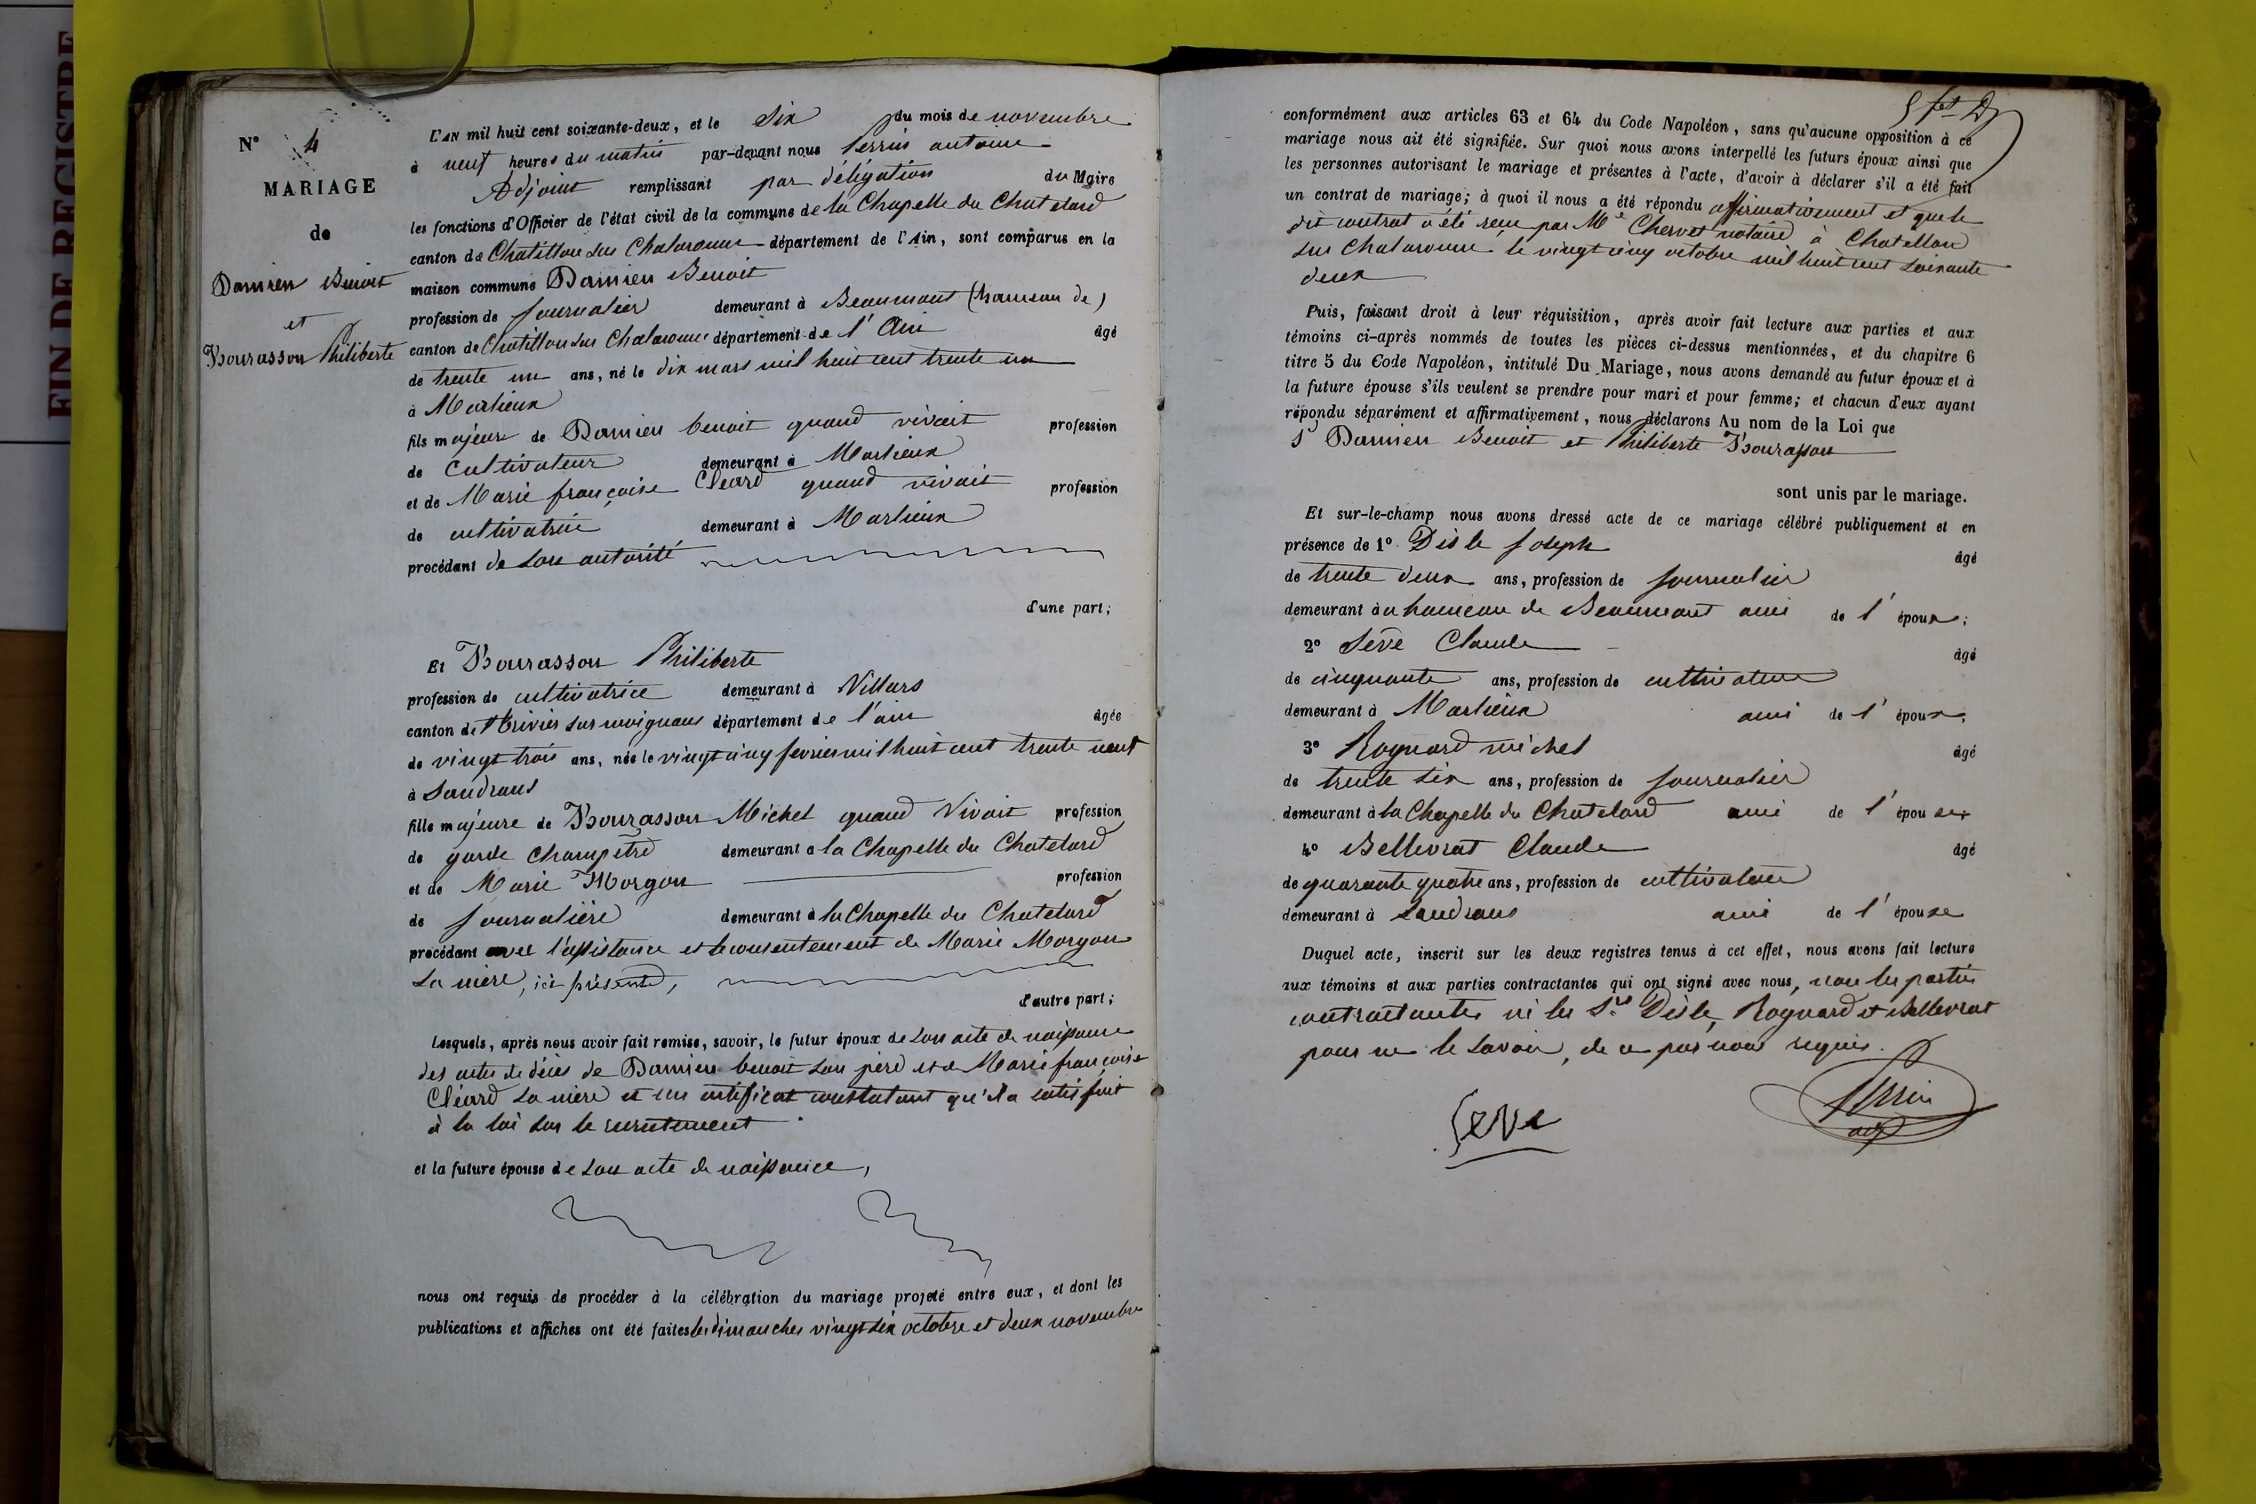 FIN DE REGISTRE
N° 4
MARIAGE
de
Damien Benoit
et
Bourasson Philiberte
L'AN mil huit cent soixante-deux, et le Six du mois de novembre
à neuf heures du matin par-devant nous Perrin antoine
Adjoint remplissant par déligation du Maire
les fonctions d'Officier de l'état civil de la commune de la Chapelle du Chatelard
canton de Chatillon sur Chalaronne département de l'Ain, sont comparus en la
maison commune Damien Benoit
profession de journalier demeurant à Beaumont (hameau de)
canton de Chatillon sur Chalaronne département de l'Ain âgé
de trente un ans, né le dix mars mil huit cent trente un
à Marlieux
fils majeur de Damien benoit quand vivait profession
de cultivateur demeurant à Marlieux
et de Marie françoise Cléard quand vivait profession
de cultivatrice demeurant à Marlieux
procédant de son autorité
d'une part;
Et Bourasson Philiberte
profession de cultivatrice demeurant à Villars
canton de trivier sur moignans département de l'ain âgée
de vingt trois ans, née le vingt cinq fevrier mil huit cent trente neuf
à Sandrans
fille majeure de Bourasson Michel quand Vivait profession
de garde Champêtre demeurant à la Chapelle du Chatelard
et de Marie Morgon profession
de journalière demeurant à la Chapelle du Chatelard
procédant avec l'assistance et le consentement de Marie Morgon
sa mère, ici présente,
d'autre part;
Lesquels, après nous avoir fait remise, savoir, le futur époux de son acte de naissance
des actes de décès de Damien benoit son père et de Marie françoise
Cléard sa mère et un certificat constatant qu'il a satisfait
à la loi sur le recrutement
et la future épouse de son acte de naissance,
nous ont requis de procéder à la célébration du mariage projeté entre eux, et dont les
publications et affiches ont été faites les dimanches vingt six octobre et deux novembre
conformément aux articles 63 et 64 du Code Napoléon, sans qu'aucune opposition à ce
mariage nous ait été signifiée. Sur quoi nous avons interpellé les futurs époux ainsi que
les personnes autorisant le mariage et présentes à l'acte, d'avoir à déclarer s'il a été fait
un contrat de mariage; à quoi il nous a été répondu affirmativement et que le
dit contrat a été reçu par Me Chervet notaire à Chatellon
sur Chalaronne le vingt cinq octobre mil huit cent soixante
deux
Puis, faisant droit à leur réquisition, après avoir fait lecture aux parties et aux
témoins ci-après nommés de toutes les pièces ci-dessus mentionnées, et du chapitre 6
titre 5 du Code Napoléon, intitulé Du Mariage, nous avons demandé au futur époux et à
la future épouse s'ils veulent se prendre pour mari et pour femme; et chacun d'eux ayant
répondu séparément et affirmativement, nous déclarons Au nom de la Loi que
Sr Damien Benoit et Philiberte Bourasson
sont unis par le mariage.
Et sur-le-champ nous avons dressé acte de ce mariage célébré publiquement et en
présence de 1° Disle Joseph âgé
de trente deux ans, profession de journalier
demeurant au hameau de Beaumont ami de l'époux;
2° Sève Claude âgé
de cinquante ans, profession de cultivateur
demeurant à Marlieux ami de l'époux;
3° Roynard michel âgé
de trente six ans, profession de journalier
demeurant à la Chapelle du Chatelard ami de l'épouse
4° Bellevrat Claude âgé
de quarante quatre ans, profession de cultivateur
demeurant à Sandrans ami de l'épouse
Duquel acte, inscrit sur les deux registres tenus à cet effet, nous avons fait lecture
aux témoins et aux parties contractantes qui ont signé avec nous, non les parties
contractantes ni les Srs Disle, Roynard et Bellevrat
pour ne le savoir, de ce par nous requis.
Seve
Perrin
adj